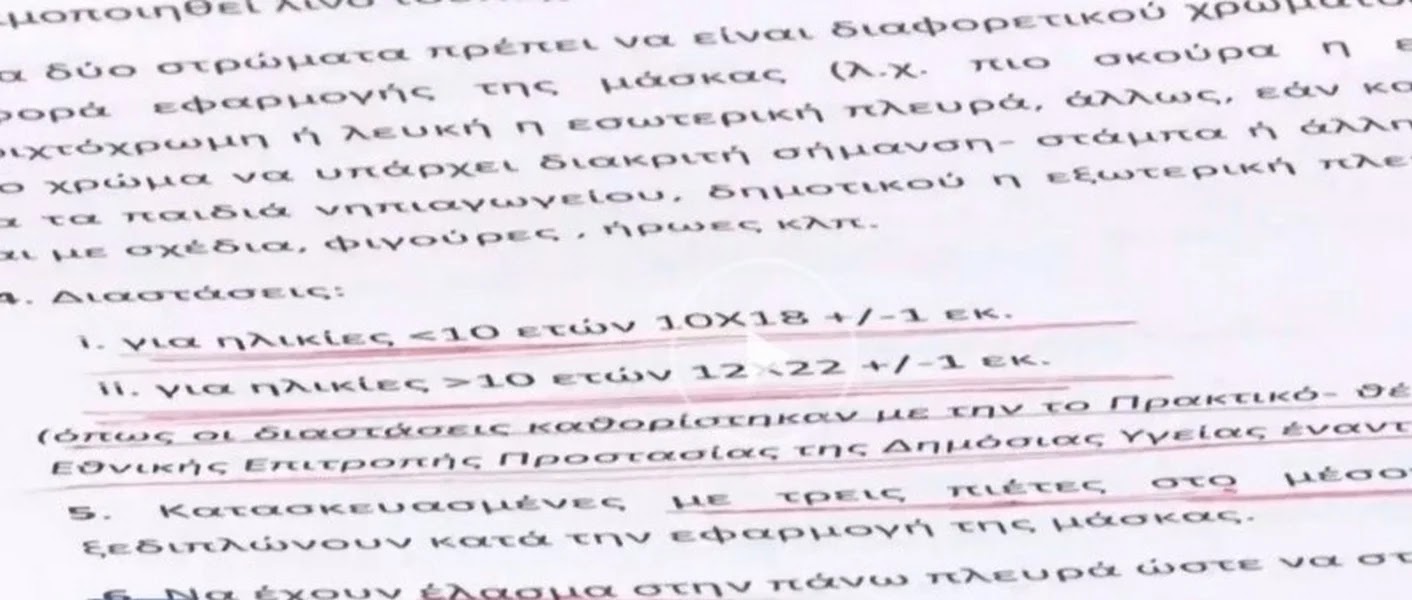 α δύο στρώματα πρέπει να είναι διαφορετικού
εφαρμογής της μάσκας (λ.χ. πιο σκούρα η
ή λευκή η εσωτερική πλευρά, άλλως, εάν
ο χρώμα να υπάρχει διακριτή σήμανση- στάμπα ή
α τα παιδιά νηπιαγωγείου, δημοτικού η εξωτερική
αι με σχέδια, φιγούρες , ήρωες κλπ.
4. Διαστάσεις:
i. για ηλικίες <10 ετών 10X18 +/-1 εκ.
ii. για ηλικίες >10 ετών 12x22 +/-1 εκ.
(όπως οι διαστάσεις καθορίστηκαν με την το Πρακτικό-
Εθνικής Επιτροπής Προστασίας της Δημόσιας Υγείας
5. Κατασκευασμένες με τρεις πιέτες στο
ξεδιπλώνουν κατά την εφαρμογή της μάσκας.
6. Να έχουν έλασμα στην πάνω πλευρά ώστε να